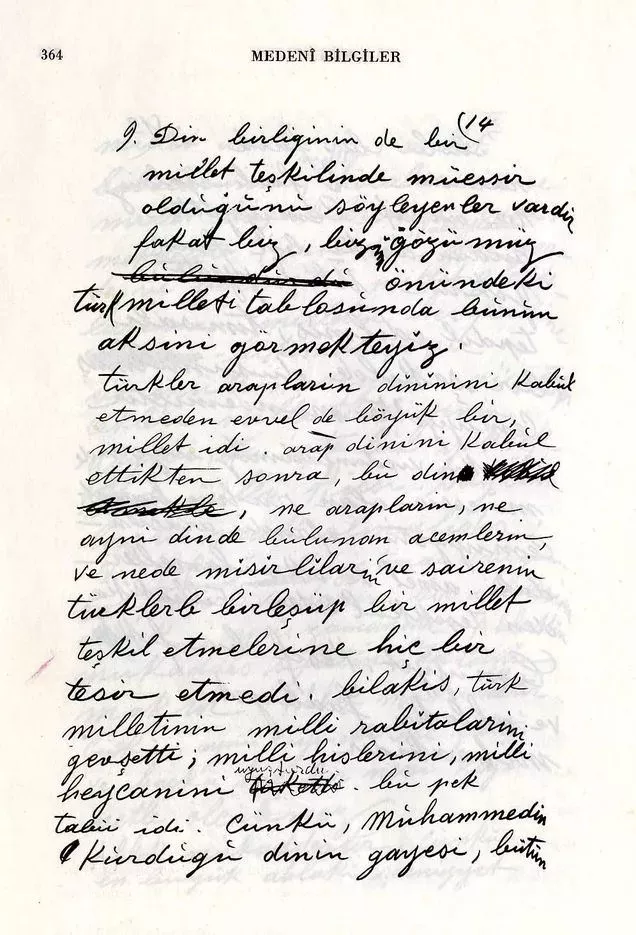 364 MEDENÎ BİLGİLER
9. Din birliginin de bir (14
millet teşkilinde müessir
olduğunu söyleyenler vardır
fakat biz, bizim gözümüz
önündeki
türk milleti tablosunda bunun
aksini görmekteyiz.
türkler arapların dininini kabul
etmeden evvel de böyük bir,
millet idi. arap dinini kabul
ettikten sonra, bu din
, ne arapların, ne
ayni dinde bulunan acemlerin,
ve nede mısırlıların ve sairenin
türklerle birleşüp bir millet
teşkil etmelerine hiç bir
tesir etmedi. bilakis, türk
milletinin milli rabıtalarını
gevşetti; milli hislerini, milli
uyuşturdu
heyçanini. bu pek
tabii idi. Çünkü, Muhammedin
kurduğu dinin gayesi, bütün